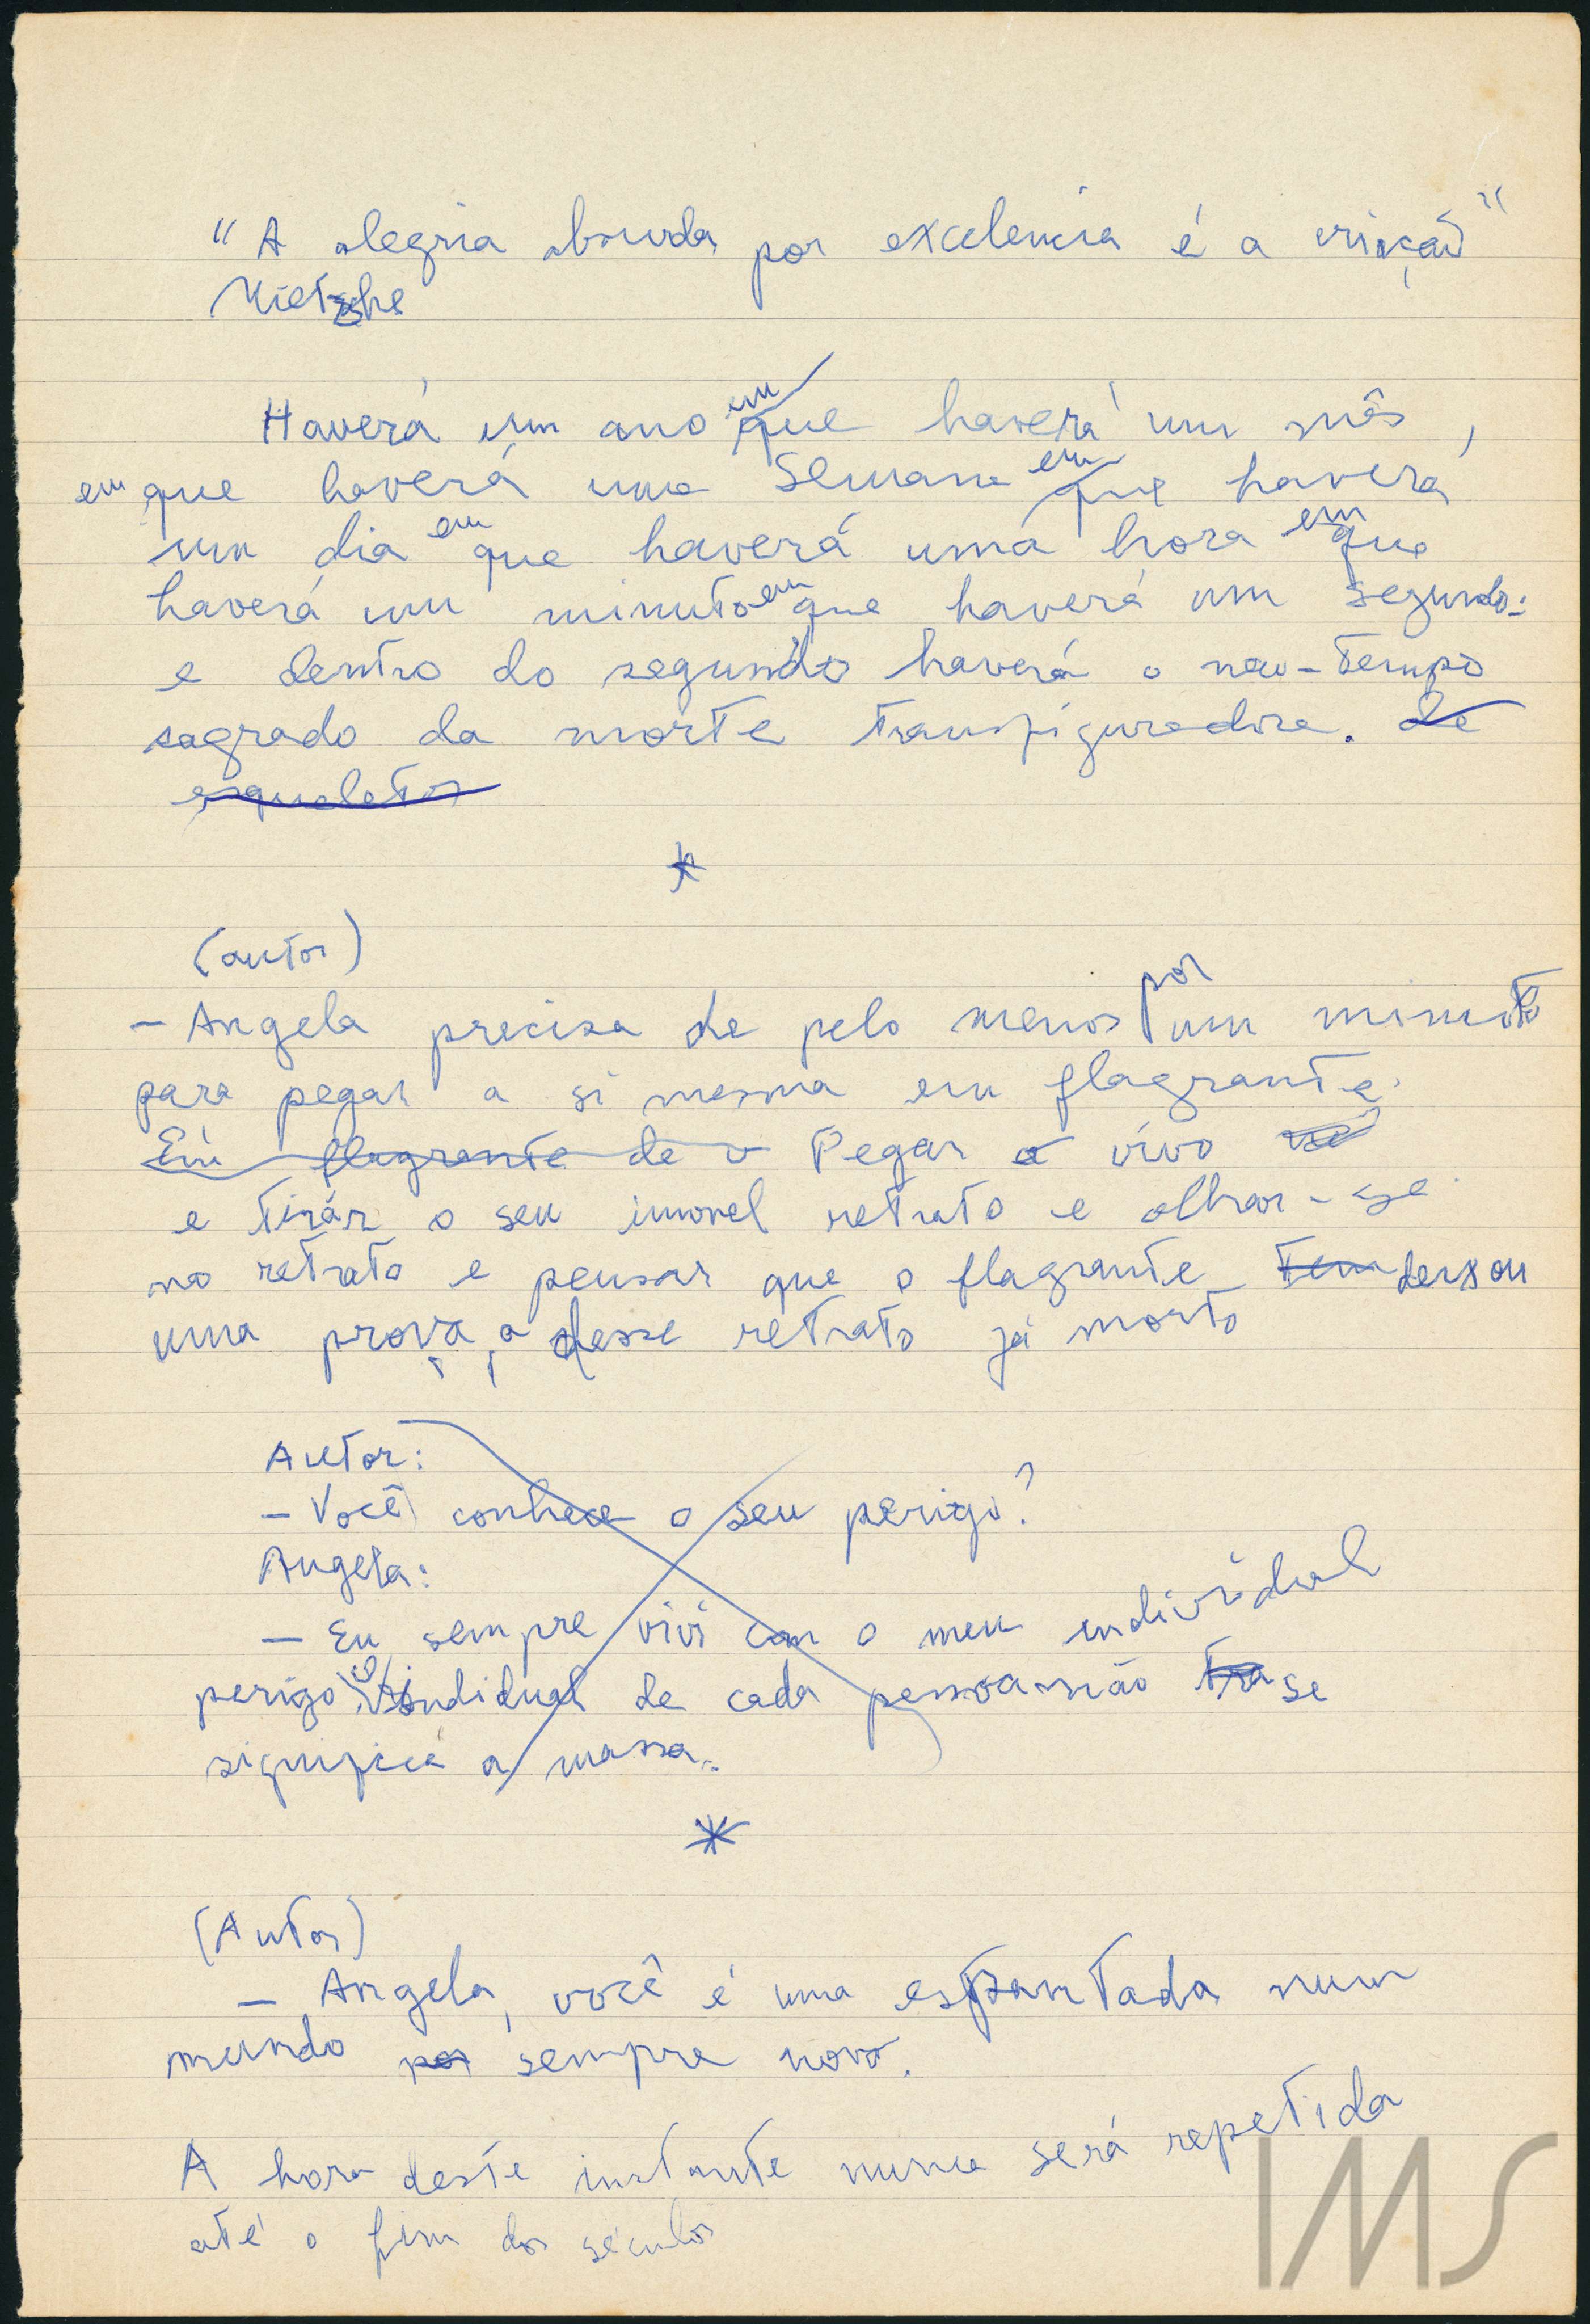 "A alegria absurda por excelencia é a criação"
Nietzsche
Haverá um ano em que haverá um mês,
em que haverá uma semana em que haverá
um dia em que haverá uma hora em que
haverá um minuto em que haverá um segundo:
e dentro do segundo haverá o não-tempo
sagrado da morte transfiguradora. de
esqueletos
*
(autor)
- Angela precisa de pelo menos por um minuto
para pegar a si mesma em flagrante.
Em flagrante de v Pegar o vivo
e tirar o seu imovel retrato e olhar-se
no retrato e pensar que o flagrante tem deixou
uma prova, a desse retrato já morto
Autor:
- Você conhece o seu perigo?
Angela:
- Eu sempre vivi com o meu individual
perigo. indidual de cada pessoa não se
significa a massa.
*
(Autor)
- Angela, você é uma espantada num
mundo por sempre novo.
A hora deste instante nunca será repetida
até o fim dos séculos
IMS